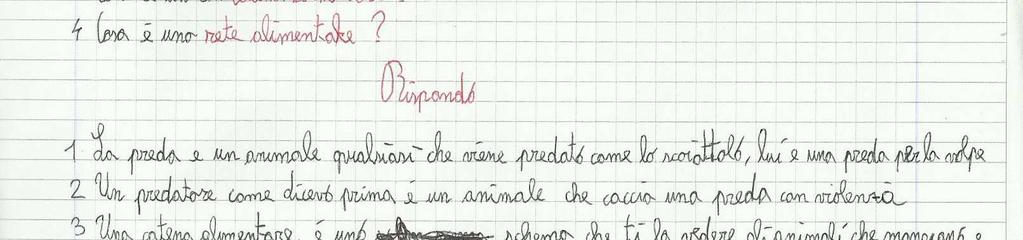 4 Cosa è uno rete alimentare?
Rispondo
1 La preda e un animale qualsiasi che viene predato come lo scoiattolo, lui e una preda per la volpe
2 Un predatore come dicevo prima é un animale che caccia una preda con violenza
3 Una catena alimentare é uno schema che ti fa vedere gli animali che mangiano e